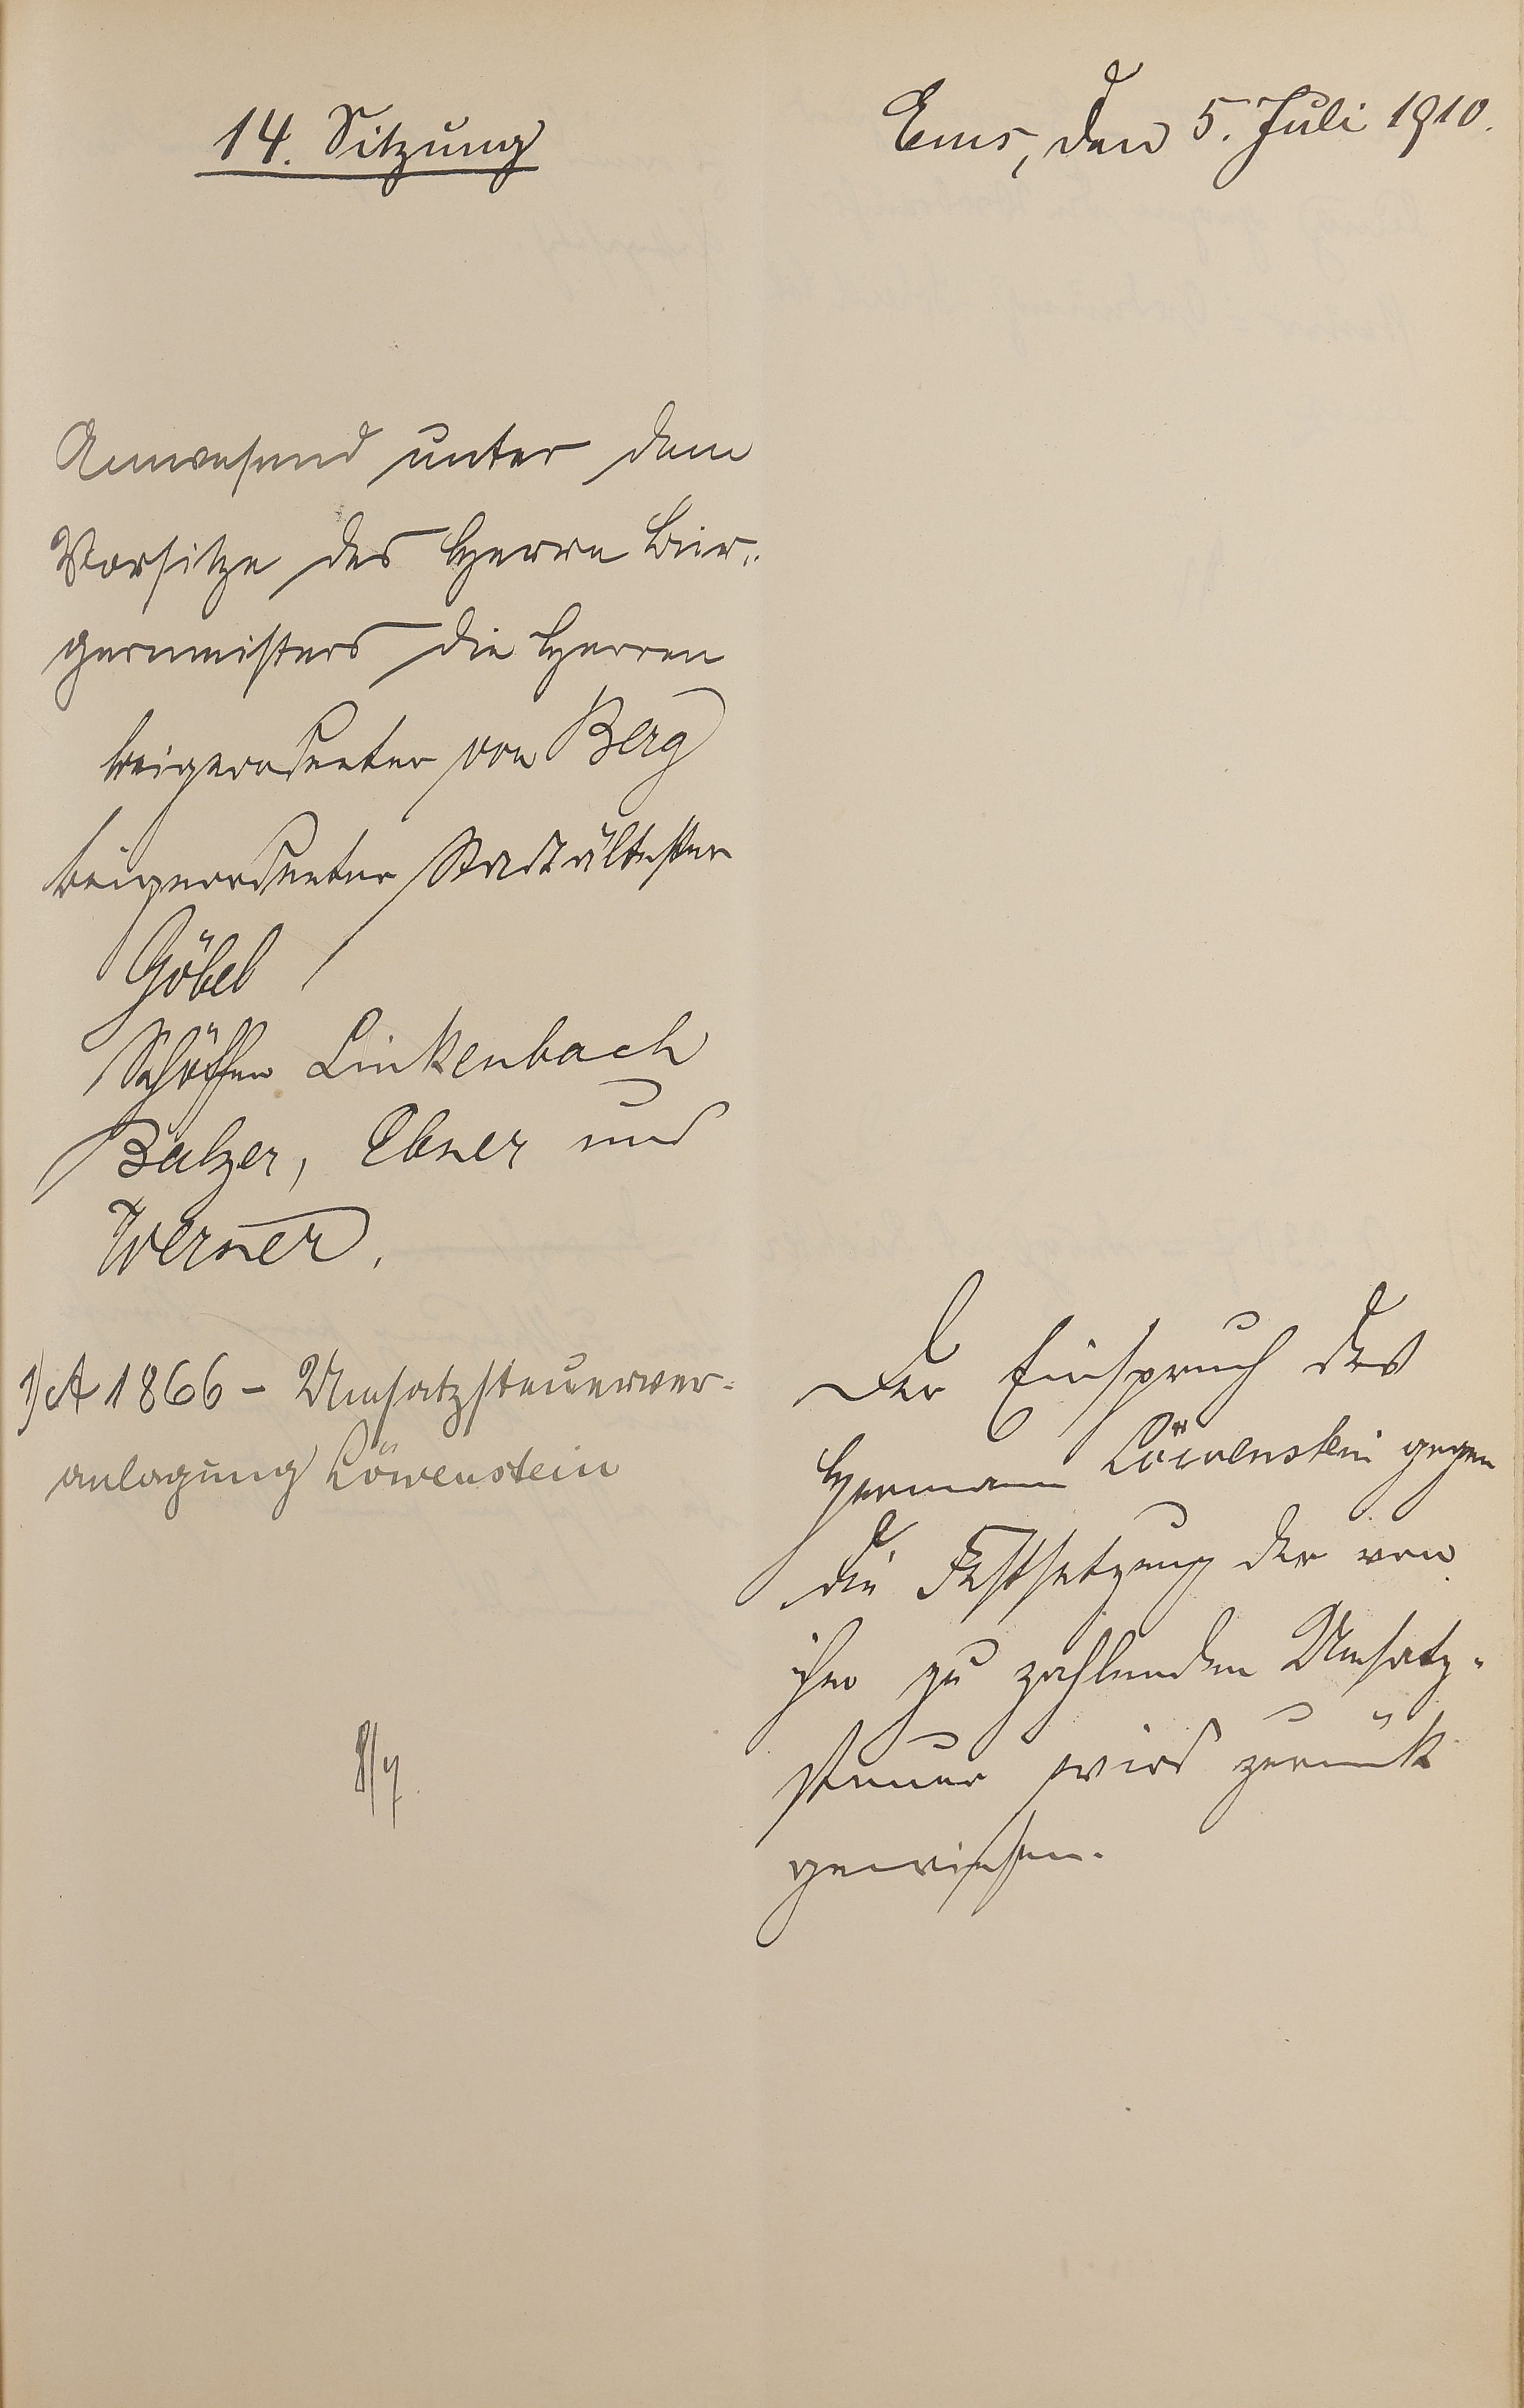 14. Sitzung
Ems, den 5. Juli 1910.
Anwesend unter dem
Vorsitze des Herrn Bür-
germeisters die Herren
Beigeordneter von Berg
Beigeordneter Stadtältester
Göbel
Schöffen Linkenbach
Balzer, Ebner und
Werner.
1) A 1866 - Umsatzsteuerver-
anlagung Löwenstein
8/7.
Der Einspruch des
Hermann Löwenstein gegen
die Festsetzung der von
ihm zu zahlenden Umsatz-
steuer wird zurück
gewiesen.